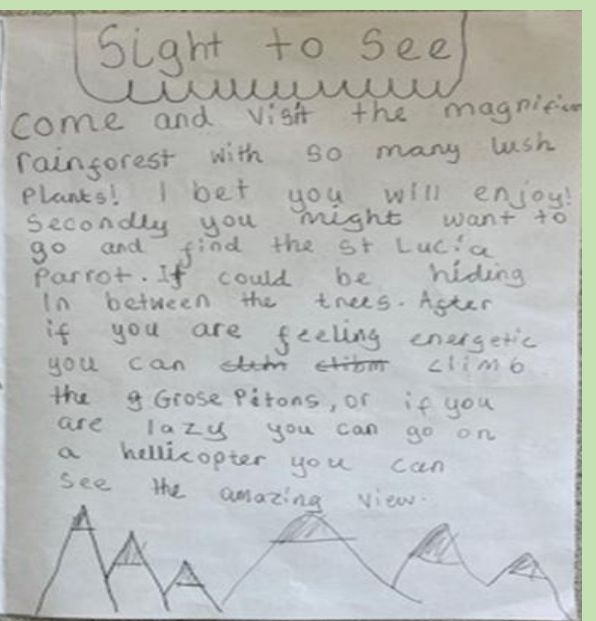 Sight to See
Come and visit the magnific
rainforest with so many lush
Plants! I bet you will enjoy!
Secondly you might want to
go and find the St Lucia
Parrot. It could be hiding
In between the trees. After
if you are feeling energetic
you can climb
the g Grose Pitons, or if you
are lazy you can go on
a hellicopter you can
see the amazing view.